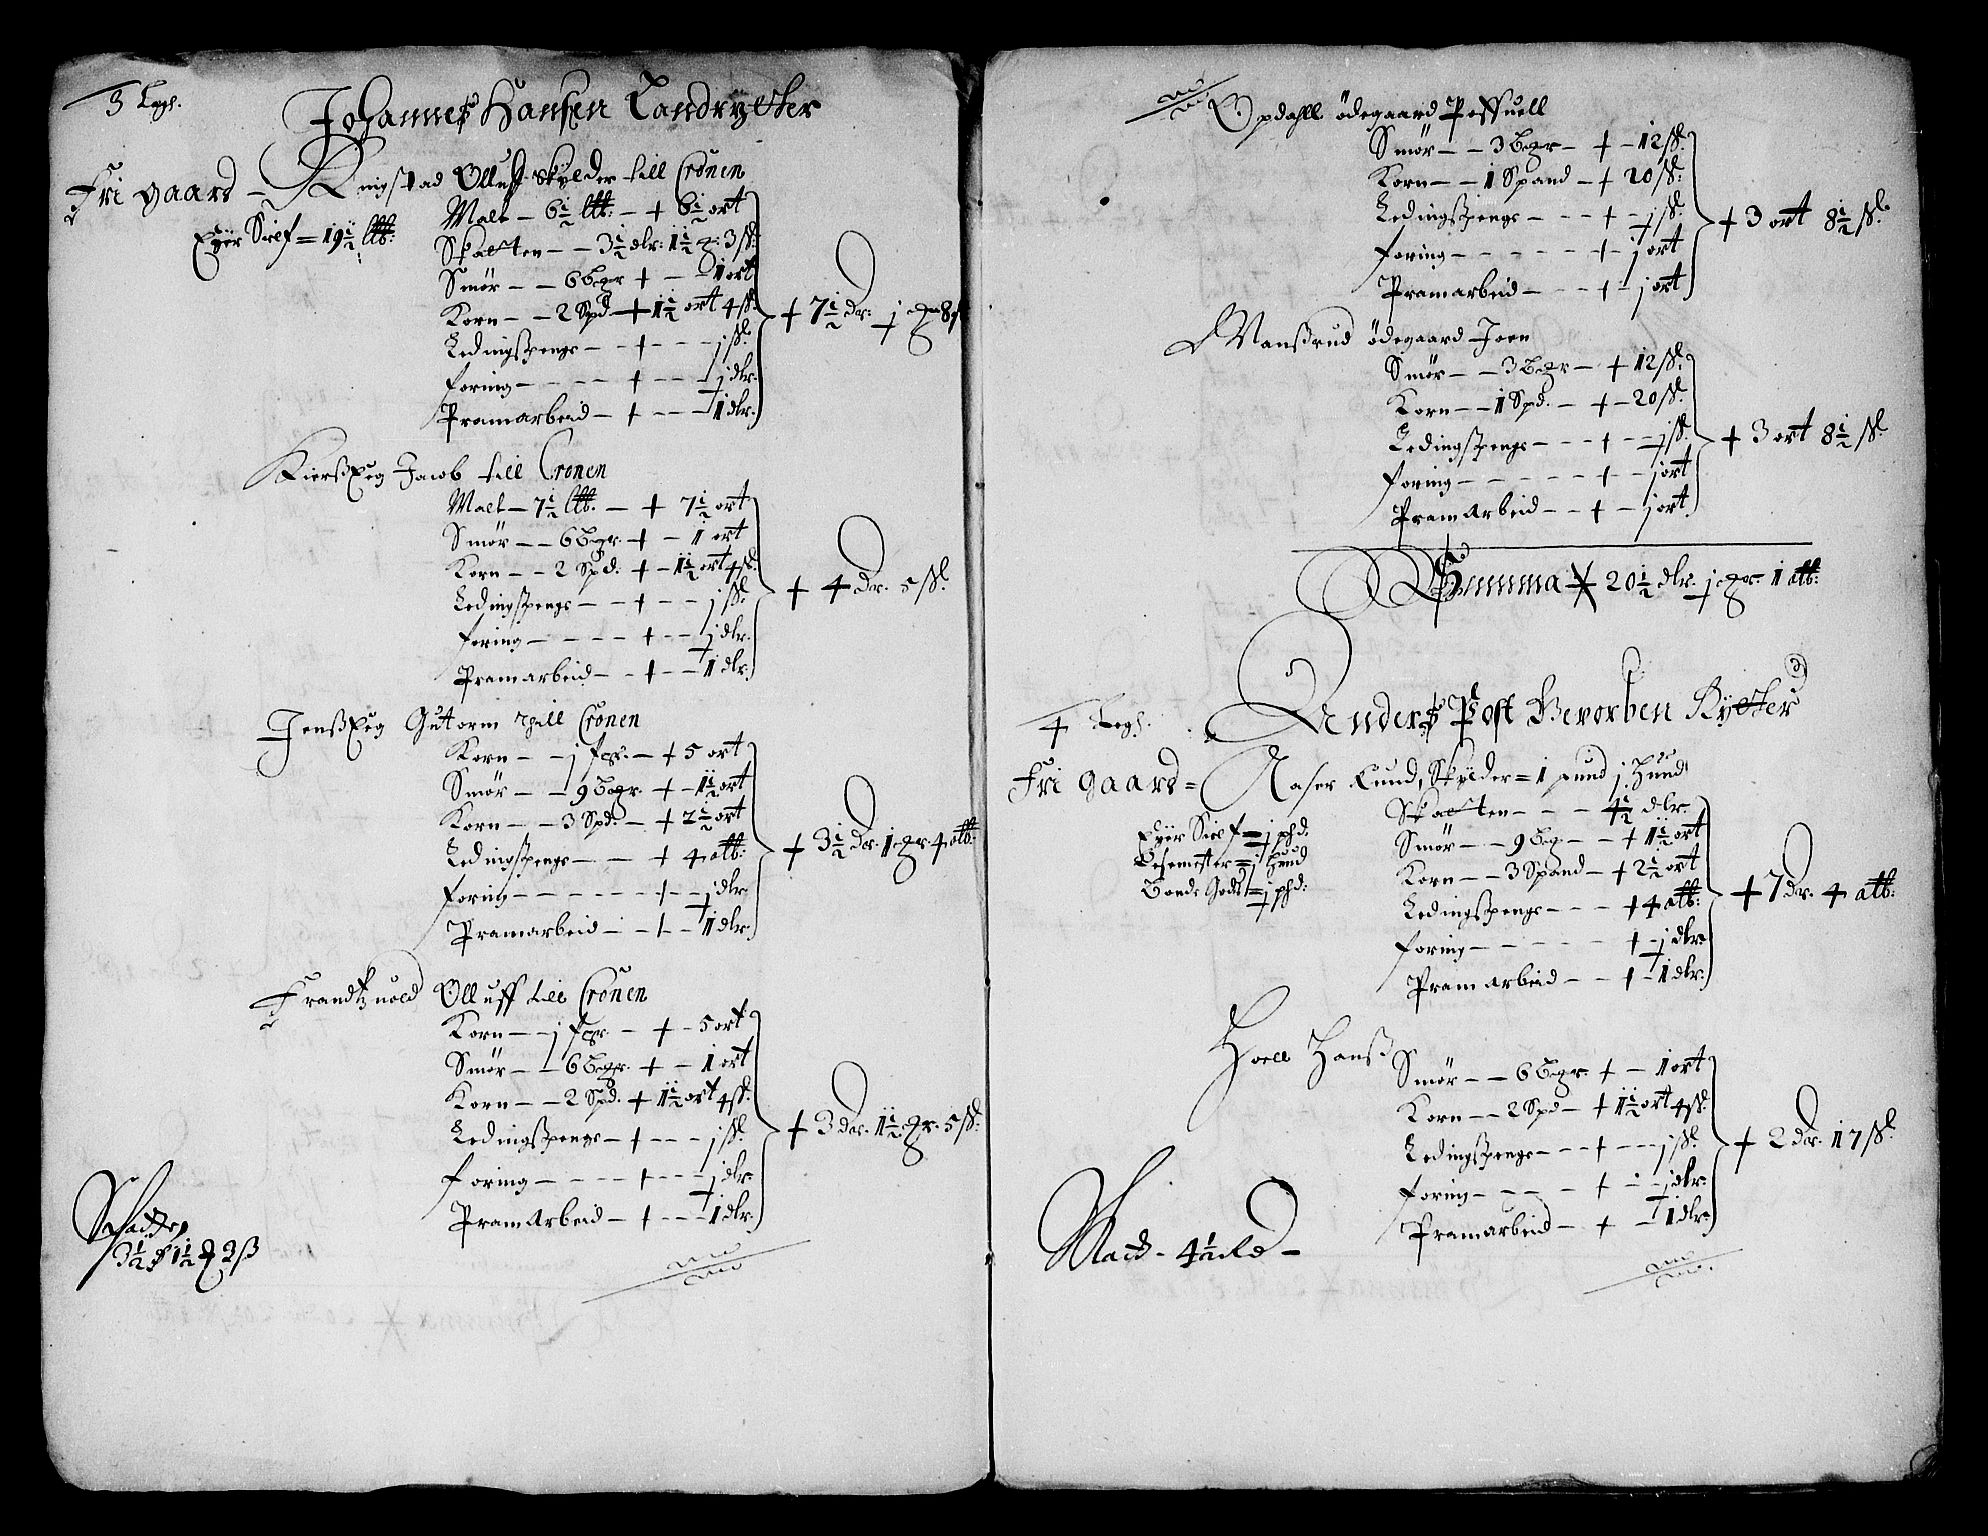 3 Legh.
Johannes Hansen Landrytter
Fri gaard - Ringstad Olluff skylder till Cronen
Eyer Sielf = 19½ ltb:
Malt - 6½ ltb: - + 6½ ort
Skatten - - 3½ dlr: 1½ 3 ß:
Smør - - 6 Bgr + - - 1 ort
Korn - - 2 Spd + 1½ ort 4 ß:
Ledingspenge - - + - - - j ß:
foring - - - - + - - - j dlr.
Pramarbeid - + - - - 1 dlr:
+ 7½ Dr: j
Kiersteg Jacob till Cronen
Malt - 7½ ltb. - + 7½ ort
Smør - - 6 Bgr. + - 1 ort
Korn - - 2 Spd: + - 1½ ort 4 ß:
Ledingspenge - - - + - - j ß:
foring - - - - - + - - j dlr.
Pramarbeid - - + - - 1 dlr:
+ 4 Dr. 5 ß.
Gutorm till Cronen
Korn - - j - + 5 ort
Smør - - 9 Bgr. + - 1½ ort
Korn - - 3 Spd. - + 2½ ort
Ledingspenge - - - + 4 alb:
foring - - - - - - + - - j dlr.
Pramarbeid - - + - - 1 dlr:
+ 3½ Dr. 1 4 alb:
Olluff till Cronen
Korn - - j - + - 5 ort
Smør - - 6 Bgr. + - 1 ort
Korn - - 2 Spd. + 1½ ort 4 ß.
Ledingspenge - + - - - j ß.
foring - - - - + - - - j dlr.
Pramarbeid - + - - - 1 dlr.
+ 3 Dr. 1½ 5 ß:
3½ 1½ 3 ß
Opdahll ödegaard
Smør - - 3 Bgr - + - 12 ß.
Korn - - 1 Spand - + 20 ß:
Ledingspenge - - - + - j ß.
foring - - - - - - + - j ort
Pramarbeid - - - + - j ort
+ 3 ort 8½ ß.
Manßrud ödegaard Joen
Smør - - 3 Bgr - + 12 ß.
Korn - - 1 Spd. - + - 20 ß.
Ledingspenge - - - + - - j ß.
foring - - - - - + - - j ort
Pramarbeid - - + - j ort
+ 3 ort 8½ ß.
Summa + 20½ dlr. j 1 alb:
4 Legh. Anders Post Beworben Rytter
Fri gaard = Aaser Lund, Skylder = 1 pund j hund
Eyer Sielf = j phd.
= j hund
Bonde Gods = j phd:
Skatten - - - 4½ dlr.
Smør - - 9 Bg - - + 1½ ort
Korn - - 3 Spand - + 2½ ort
Ledingspenge - - - + 4 alb:
foring - - - - - - + - j dlr
Pramarbeid - - + - 1 dlr:
+ 7 Dr. 4 alb:
Hoell Hanß
Smør - - 6 Bgr. + - 1 ort
Korn - - 2 Spd - + 1½ ort 4 ß.
Ledingspenge - - - + - - j ß.
foring - - - - + - - j dlr.
Pramarbeid - + - 1 dlr:
+ 2 Dr. 17 ß.
4½